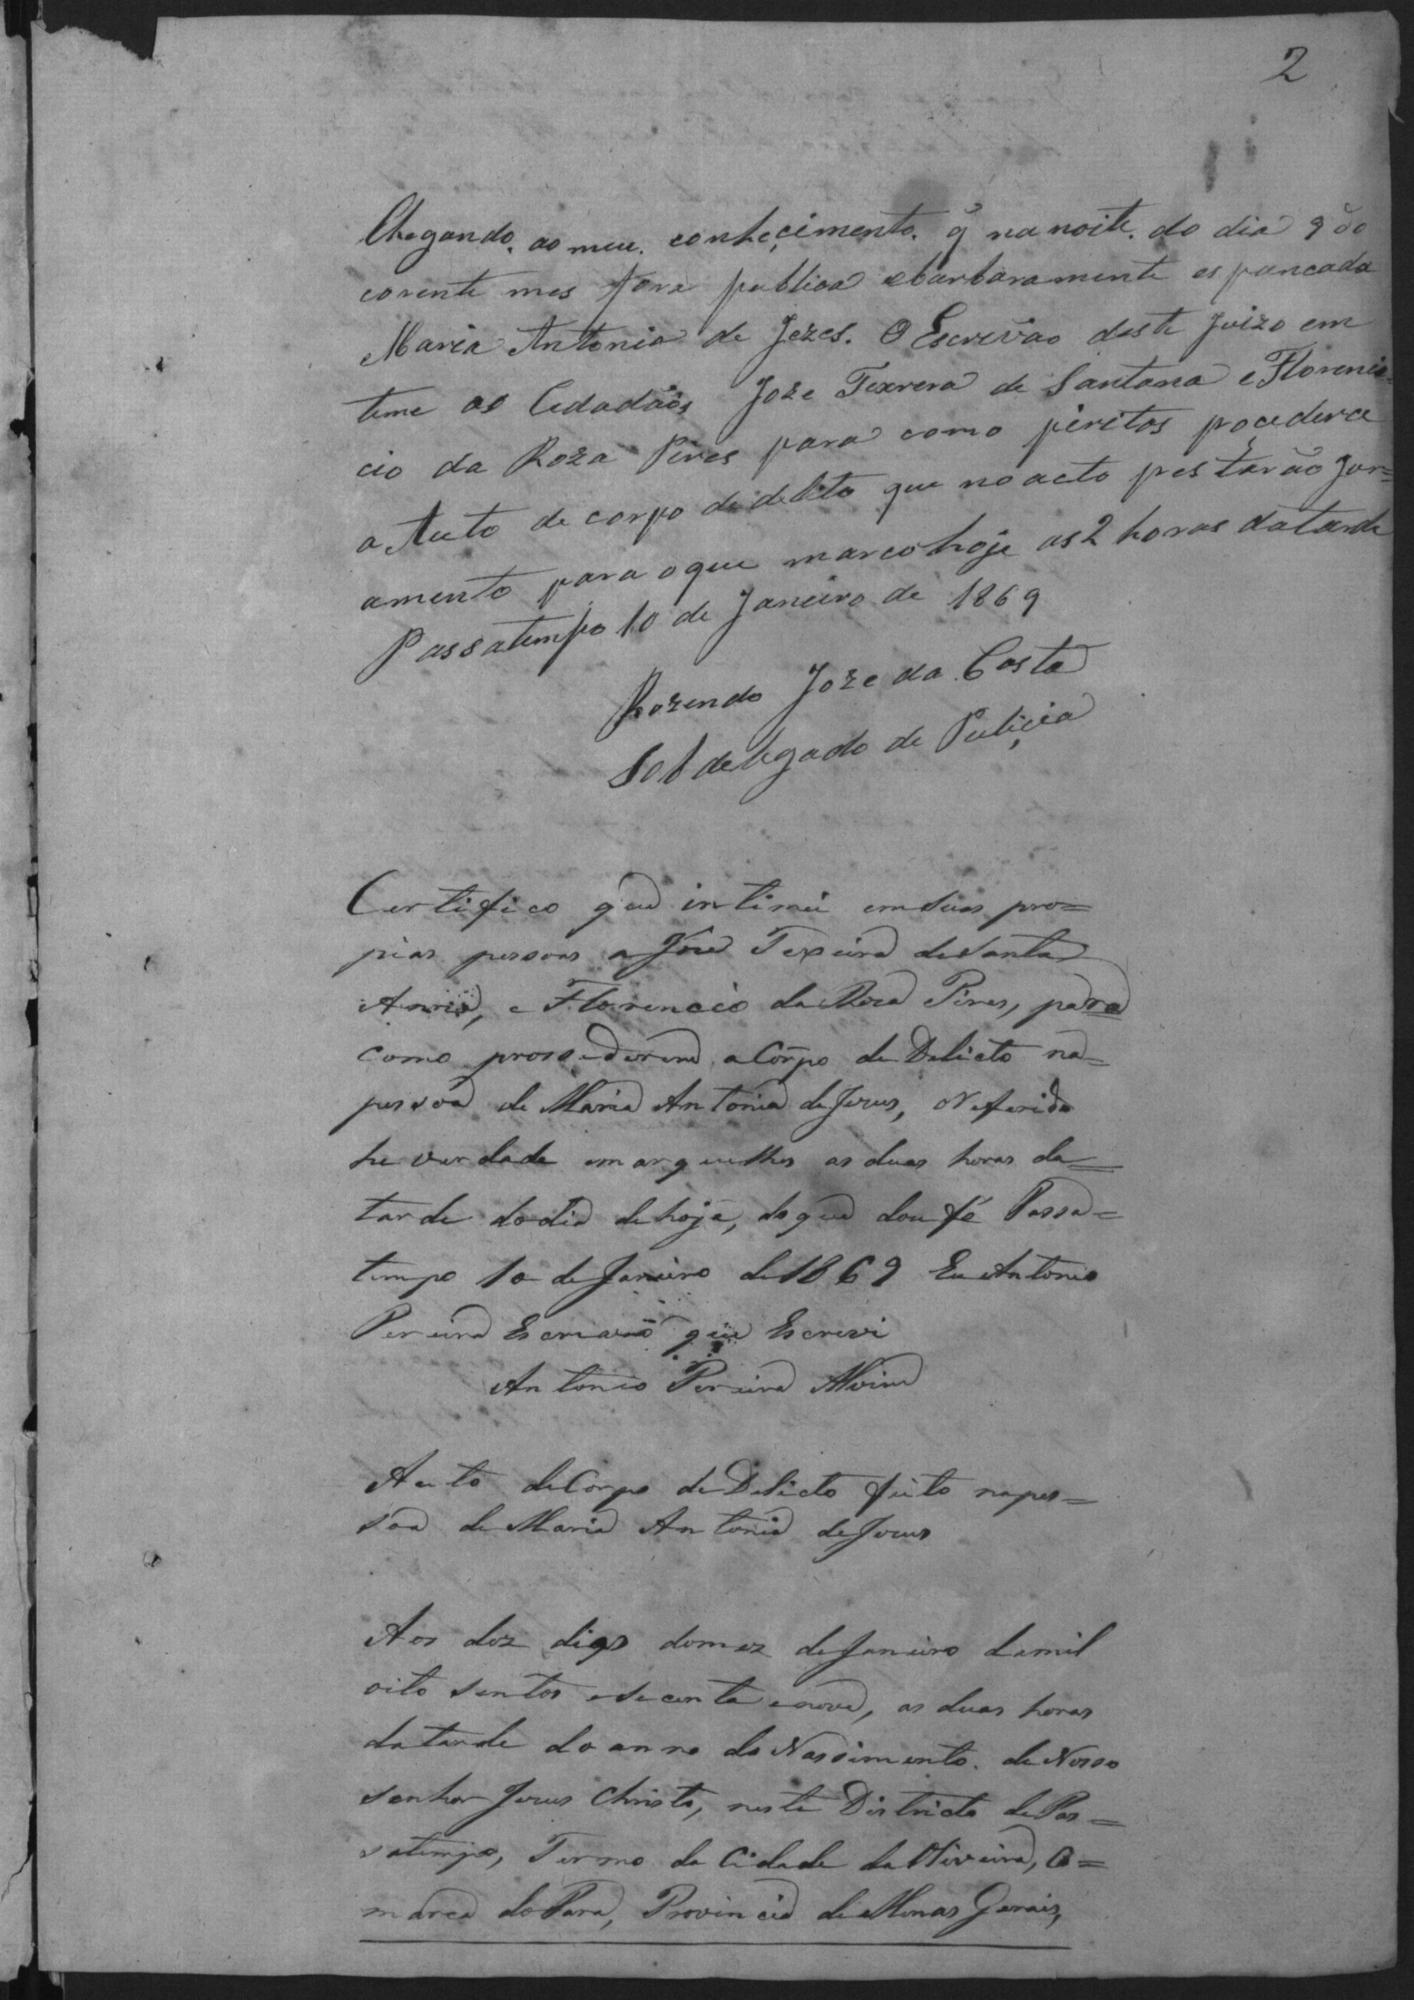 2
Chegando. ao meu. conheçimento. q̃ na noite. do dia 9 do
corente mes fora publica ebarbaramente espancada
Maria Antonia de Jezes. O Escrivão deste Juizo em
teme os Cidadãos Joze Texrera de Santana e Florenc=
cio da Roza Pires para como piritos proçedere
o Auto de corpo de delito que no acto prestarão Jor=
amento para oque marco hoje as 2 horas da tarde
Passatempo 10 de Janeiro de 1869
Rozendo Joze da Costa
Sobdelegado de Puliçia
Certifico que intimei em suas pro=
pias pessoas a José Texeira de Santa
Anna, e Florencio da Roza Pires, para
como prossederem a Corpo de Delicto na=
pessoa de Maria Antonia de Jesus, o Referido
he verdade emarquelhes as duas horas da=
tarde do dia de hoje, do que dou fé Passa=
tempo 10 de Janeiro de 1869 Eu Antonio
Pereira Escrivaõ que Escrevi
Antonio Pereira
Auto de Corpo de Delicto feito na pes=
soa de Maria Antonia de Jesus
Aos dez dias do mez de Janeiro de mil
oito sentos e secenta e nove, as duas horas
da tarde do anno do Nassimento. de Nosso
senhor Jesus Christo, neste Districto de Pas=
satempo, Termo da Cidade da Oliveira, Co=
marca do Pará, Provincia de Minas Gerais,